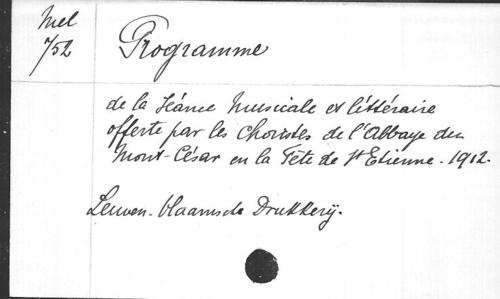 Mel
752
Programme
de la Séance Musicale et littéraire
offerte par les Choristes de l'Abbaye du
Mont-César en la Fête de St Etienne. 1912.
Leuven. Vlaamsche Drukkerij.